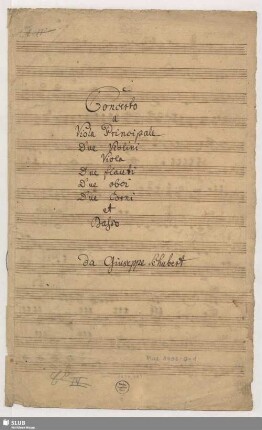 Concerto
a
Viola Principale
Due Violini
Viola
Due flauti
Due oboi
Due Corni
et
Basso
da Giuseppe Schubert
SLUB